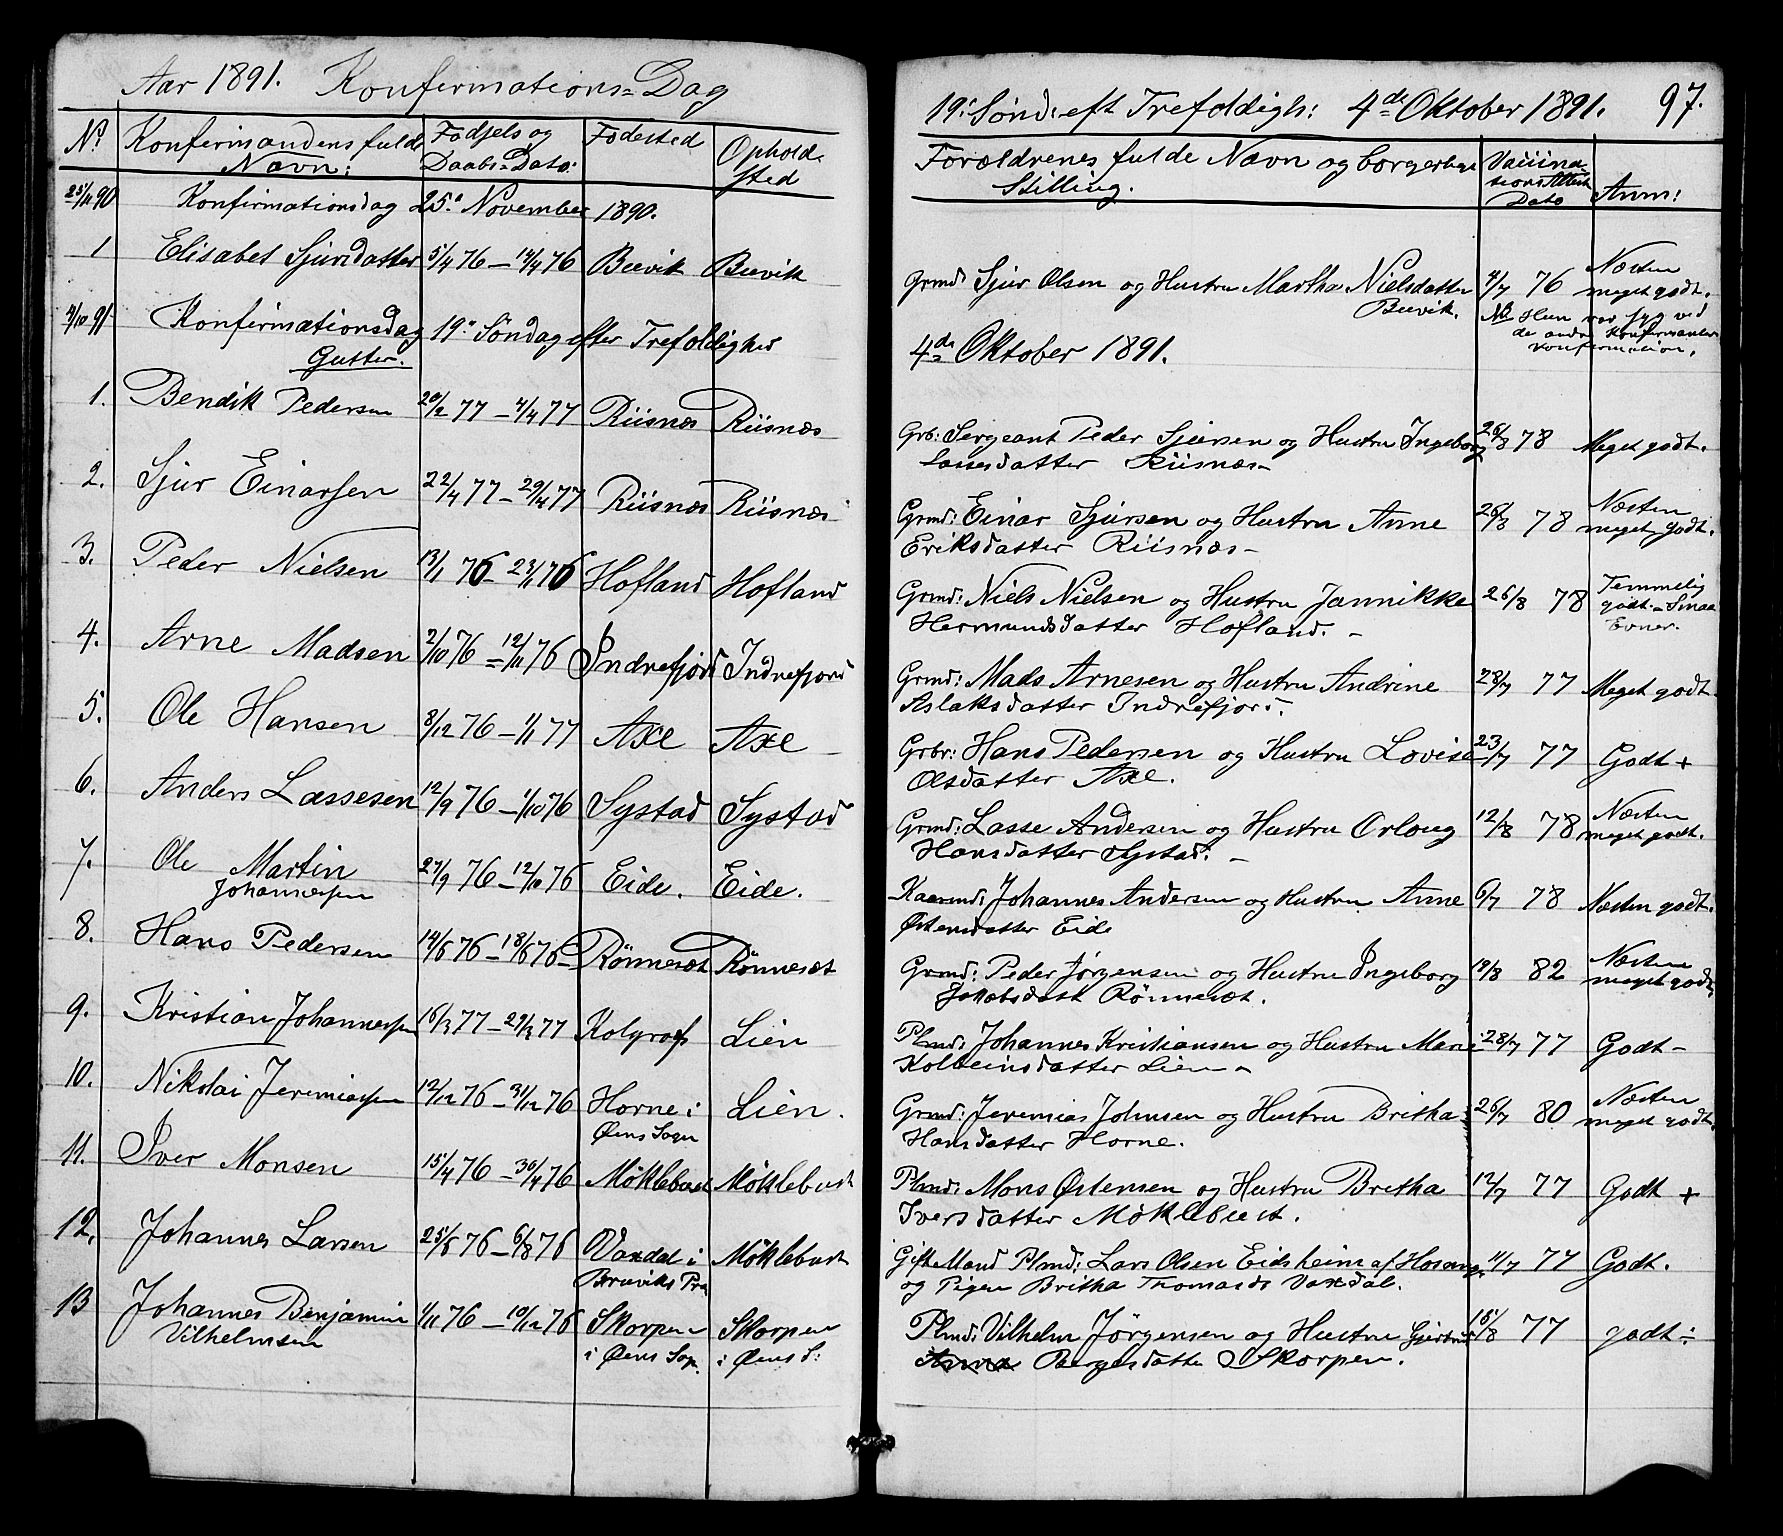 Aar 1891. Konfirmations=Dag
No Konfirmandens fulde Nævn: Fødsels og Daabs=Dato: Fødested Opholds sted
25/11 90 Konfirmationsdag 25de November 1890.
1 Elisabet Sjursdatter 5/4 76 – 17/4 76 Bervik Bervik
4/10 91 Konfirmationsdag 19de Söndag efter Trefoldighed
Gutter.
1. Bendik Pedersen 20/2 77 – 4/4 77 Riisnæs Riisnæs
2. Sjur Einarsen 22/4 77 – 29/4 77 Riisnæs Riisnæs
3. Peder Nielsen 13/1 76 – 23/1 76 Hofland Hofland
4. Arne Madsen 2/10 76 – 12/11 76 Indrefjord Indrefjord
5. Ole Hansen 8/12 76 – 1/1 77 Axe Axe
6. Anders Lassesen 12/9 76 – 1/10 76 Systad Systad
7. Ole Martin 27/9 76 – 12/10 76 Eide. Eide.
Johannessen
8. Hans Pedersen 14/6 76 – 18/6 76 – Rönneset Rönneset
9. Kristian Johannessen 16/3 77 – 29/3 77 Kolgrof Lien
10. Nikolai Jeremiassen 12/12 76 – 31/12 76 Horne i Lien.
Øens Sogn
11. Iver Monsen 15/4 76 – 30/4 76 Möklebust Möklebust
12. Johannes Larsen 25/6 76 – 6/8 76 Vaxdal i Möklebust
Bruviks Pr.
13 Johannes Benjamin 1/11 76 – 10/12 76 Skorpen Skorpen
Vilhelmsen i Øens Sog. i Øens S:
19de Sönd: eft Trefoldigh: 4de Oktober 1891. 97.
Forældrenes fulde Nævn og borgerlige Stilling. Vaccinations Attest Dato Anm:
Grmd: Sjur Olsen og Hustru Martha Nielsdatter 4/7 76 Næsten meget godt.
Bervik. NB Hun var syg ved
de andre Konfirmanters
Konfirmation.
4de Oktober 1891.
Grb: Sergeant Peder Sjursen og Hustru Ingeborg 26/8 78 Meget godt.
Lassesdatter Riisnæs –
Grmd: Einar Sjursen og Hustru Anne 26/8 78 Næsten meget godt.
Eriksdatter Riisnæs –
Grmd: Niels Nielsen og Hustru Jannikke 26/8 78 Temmelig godt – Smaa Evner.
Hermundsdatter Hofland. –
Grmd: Mads Arnesen og Hustru Andrine 28/7 77 Meget godt
Aslaksdatter Indrefjord.
Grbr: Hans Pedersen og Hustru Lovise 23/7 77 Godt +
Olsdatter Axe.
Grmd: Lasse Andersen og Hustru Orloug 12/8 78 Næsten meget godt.
Hansdatter Systad. –
Kaarmd: Johannes Andersen og Hustru Anne 6/7 78 Næsten godt.
Østensdatter Eide
Grmd: Peder Jørgensen og Hustru Ingeborg 19/8 82 Næsten meget godt
Jakobsdatt Rönneset.
Plmd: Johannes Kristiansen og Hustru Marie 28/7 77 Godt –
Kolbeinsdatter Lien –
Grmd: Jeremias Johnsen og Hustru Britha 26/7 80 Næsten meget godt.
Hansdatter Horne.
Plmd: Mons Østensen og Hustru Britha 12/7 77 Godt +
Iversdatter Möklebust.
Gift Mand Plmd: Lars Olsen Eidsheim af Hosanger 11/7 77 Godt.
og Pigen Britha Thomasd: Vaxdal.
Plmd: Vilhelm Jörgensen og Hustru Gjertrud 15/8 77 godt ÷
Anna Børgesdatter Skorpen.